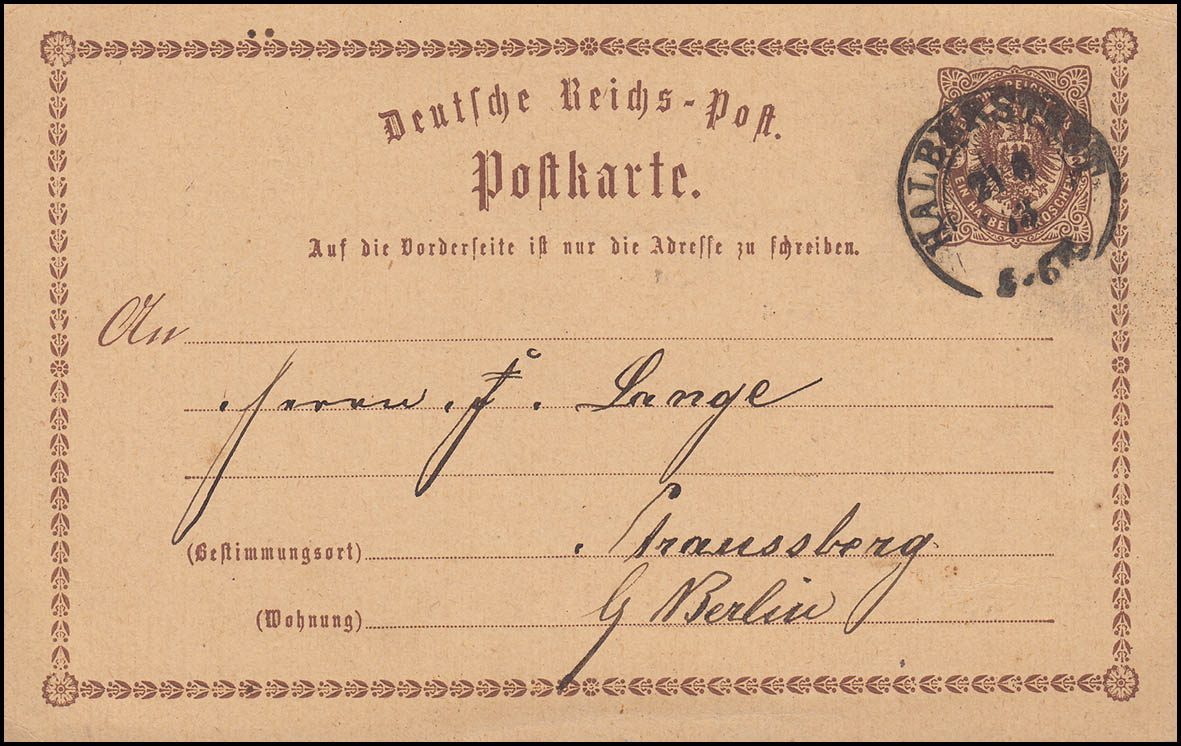 Deutsche Reichs-Post.
Postkarte.
Auf die Vorderseite ist nur die Adresse zu schreiben.
HALBERSTADT
21 8
73
6N
An
Herrn F. Lange
(Bestimmungsort) Straussberg
(Wohnung) Berlin